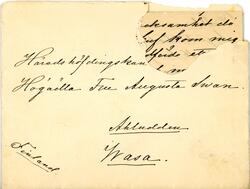 eksamhet da
kom mig
et
Häradshöfdingskan
Högädla Fru Augusta Swan.
Ahludden
Wasa.
Finland